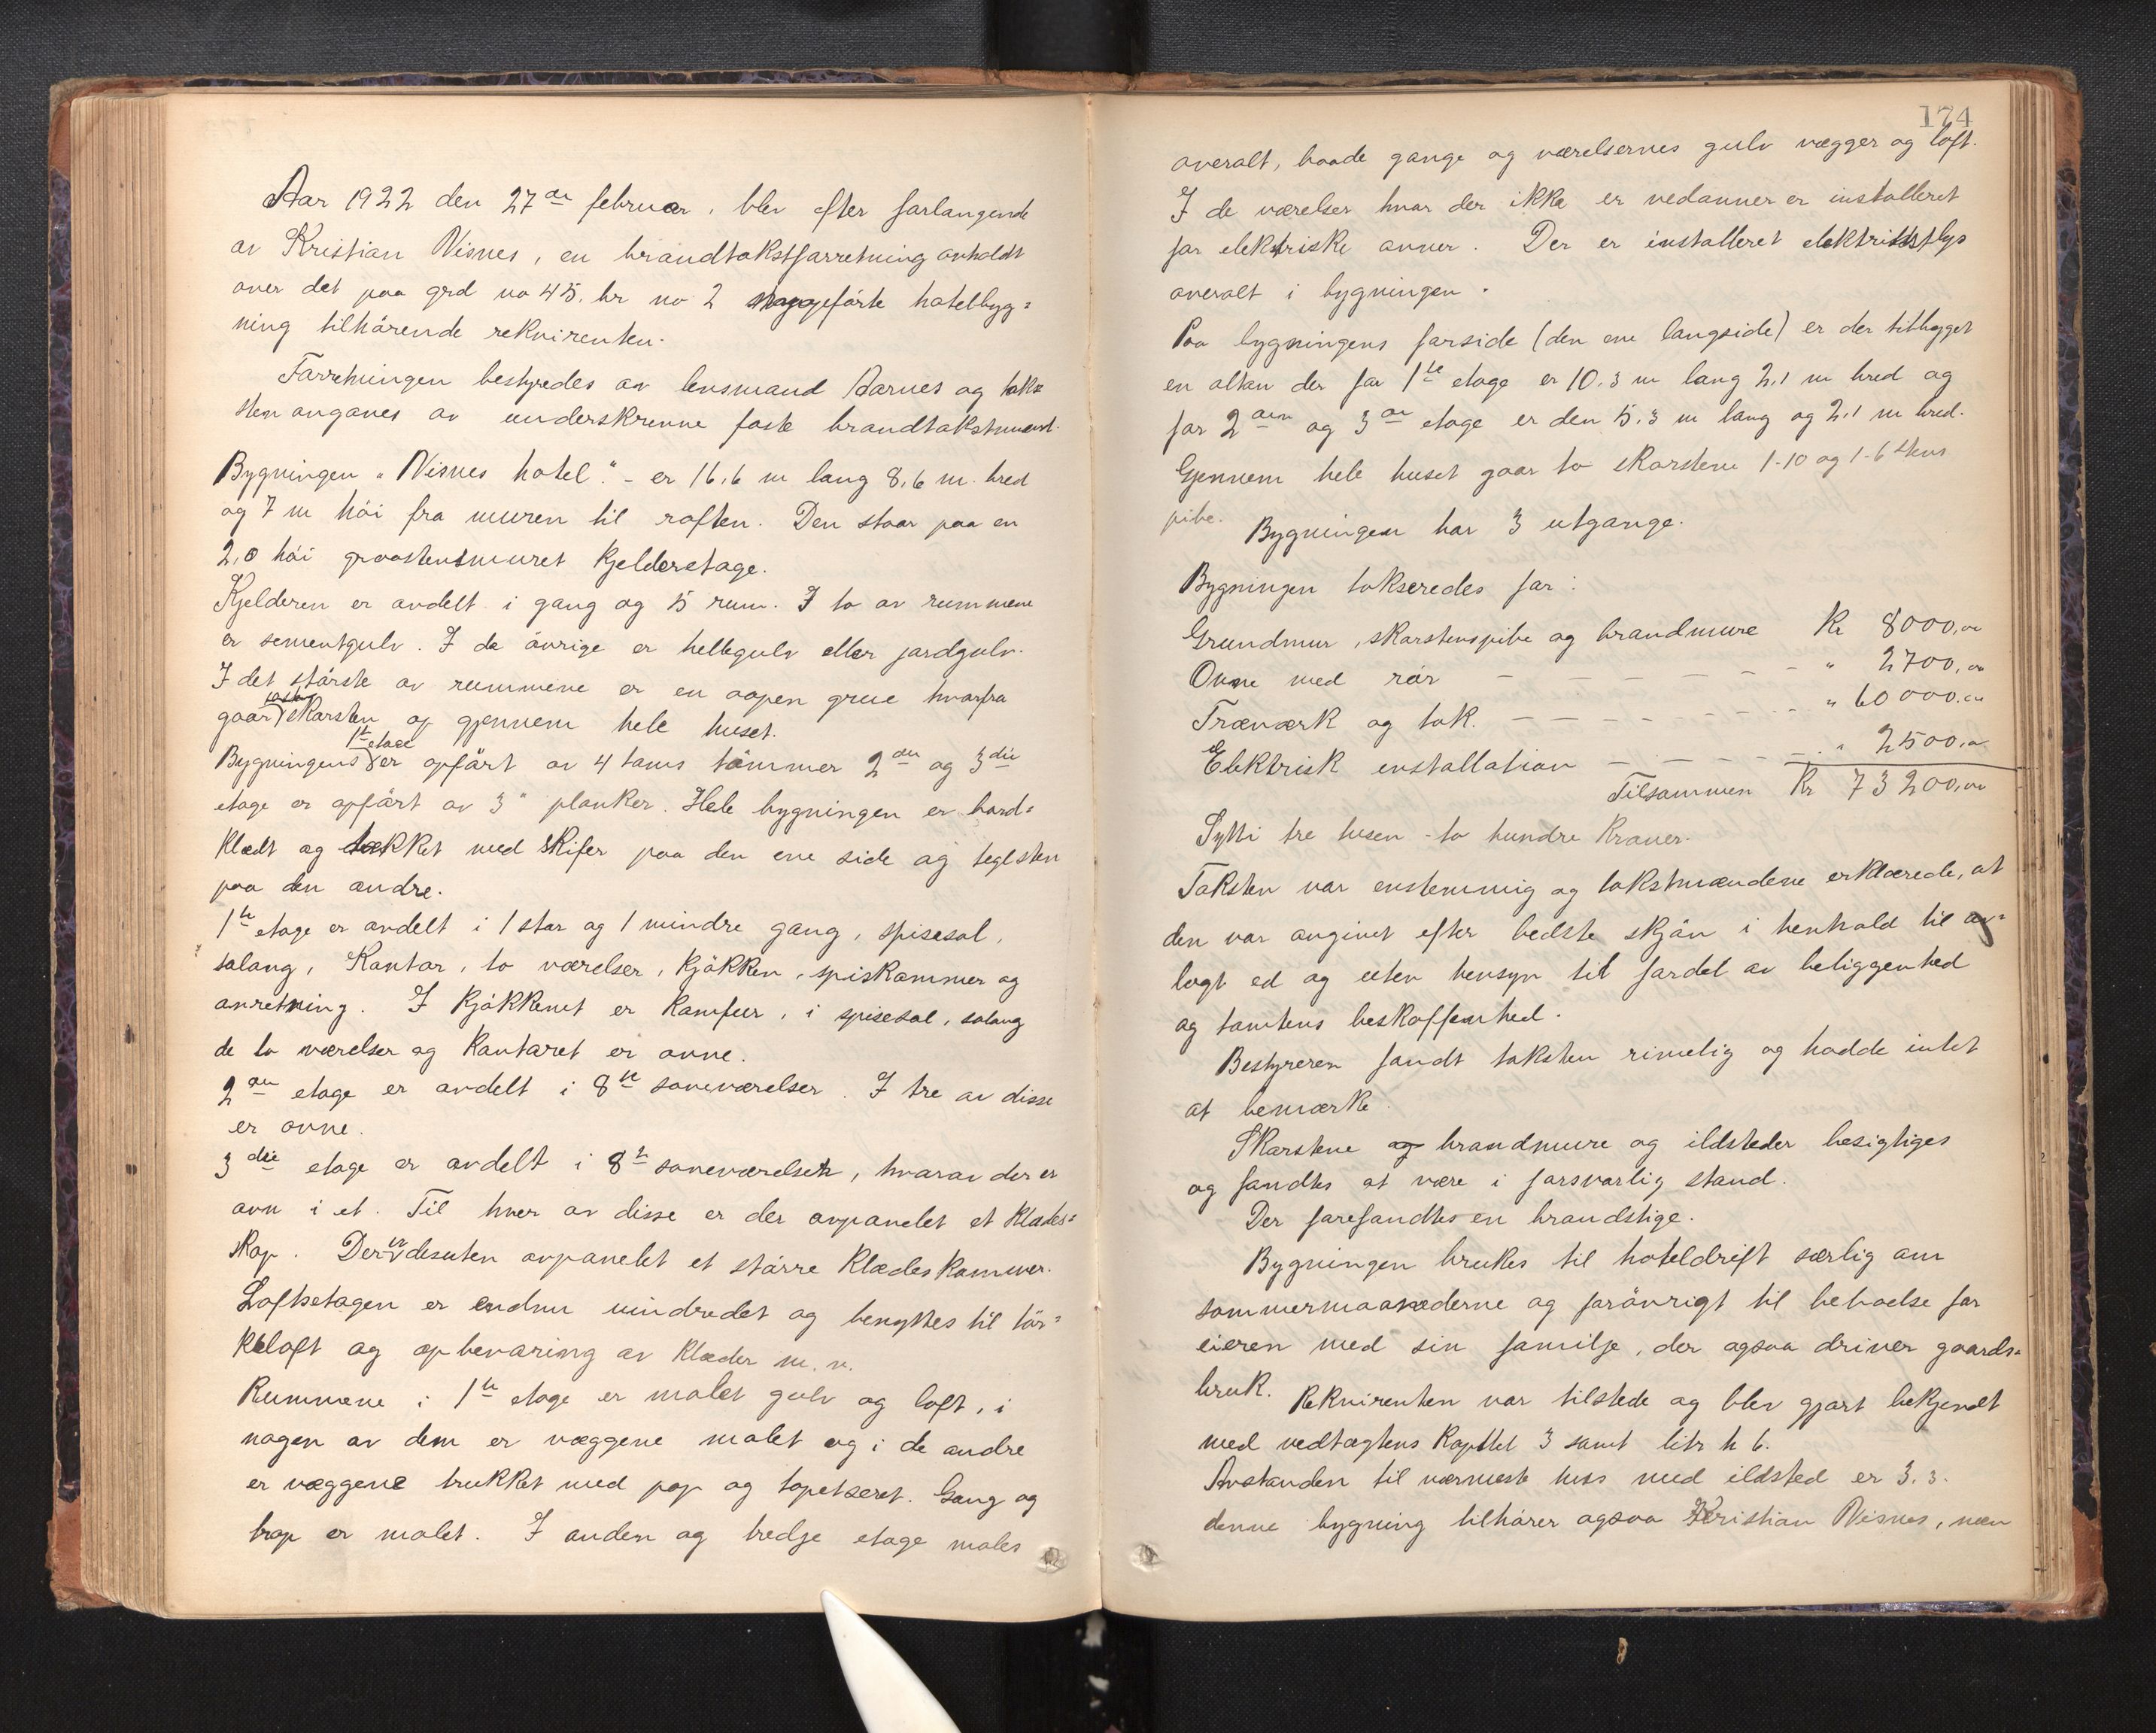 Aar 1922 den 27de februar, blev efter forlangende
av Kristian Visnes, en brandtakstforretning avholdt
over det paa grd no 45. br no 2 opførte hotelbyg=
ning tilhørende rekvirenten.
Forretningen bestyredes av lensmand Aarnes og tak=
sten avgaves av underskrevne faste brandtakstmænd.
Bygningen "Visnes hotel". - er 16,6 m lang 8,6 m. bred
og 7 m høi fra muren til roften. Den staar paa en
2,0 høi graastensmuret kjelderetage.
Kjelderen er avdelt i gang og 5 rum. I to av rummene
er sementgulv. I de øvrige er hellegulv eller jordgulv.
I det største av rummene er en aapen grue hvorfra
gaar skorsten op gjennem hele huset.
Bygningens 1ste etage er opført av 4 toms tømmer 2den og 3die
etage er opført av 3" planker. Hele bygningen er bord=
klædt og tækket med skifer paa den ene side og teglsten
paa den andre.
1ste etage er avdelt i 1 stor og 1 mindre gang, spisesal,
salong, kontor, to værelser, kjøkken, spiskammer og
anretning. I kjøkkenet er komfur, i spisesal, salong
de to værelser og kontoret er ovne.
2den etage er avdelt i 8te soveværelser. I tre av disse
er ovne.
3die etage er avdelt i 8te soveværelser, hvorav der er
ovn i et. Til hver av disse er der avpanelet et klædes=
skap. Der er desuten avpanelet et større klædeskammer.
Loftsetagen er endnu uindredet og benyttes til tør=
keloft og opbevaring av klæder m. v.
Rummene i 1ste etage er malet gulv og loft, i
nogen av dem er væggene malet og i de andre
er væggene trukket med pap og tapetseret. Gang og
trap er malet. I anden og tredje etage males
174
overalt, baade gange og værelsernes gulv vægger og loft.
I de værelser hvor der ikke er vedovner er installeret
for elektriske ovner. Der er installeret elektriskslys
overalt i bygningen.
Paa bygningens forside (den ene langside) er der tilbygget
en altan der for 1ste etage er 10.3 m lang 2,1 m bred og
for 2den og 3die etage er den 5.3 m lang og 2,1 m bred.
Gjennem hele huset gaar to skorstene 1-10 og 1-6 stens
pibe.
Bygningen har 3 utgange.
Bygningen takseredes for:
Grundmur, skorstenspibe og brandmure Kr 8000,00
Ovne med rør - - - - - - " 2700,00
Træværk og tak. - - - - - - - " 60000.00
Elektrisk installation - - - - - " 2500,00
Tilsammen Kr 73200,00
Sytti tre tusen - to hundre kroner.
Taksten var enstemmig og takstmændene erklærede, at
den var avgivet efter bedste skjøn i henhold til av=
lagt ed og uten hensyn til fordel av beliggenhed
og tomtens beskaffenhed.
Bestyreren fandt taksten rimelig og hadde intet
at bemærke.
Skorstene og brandmure og ildsteder besigtiges
og fandtes at være i forsvarlig stand.
Der forefandtes en brandstige.
Bygningen brukes til hoteldrift særlig om
sommermaanederne og forøvrigt til beboelse for
eieren med sin familje, der ogsaa driver gaards=
bruk. Rekvirenten var tilstede og blev gjort bekjendt
med vedtægtens kapitel 3 samt litr h 6.
Avstanden til nærmeste hus med ildsted er 3.3.
denne bygning tilhører ogsaa Kristian Visnes, men